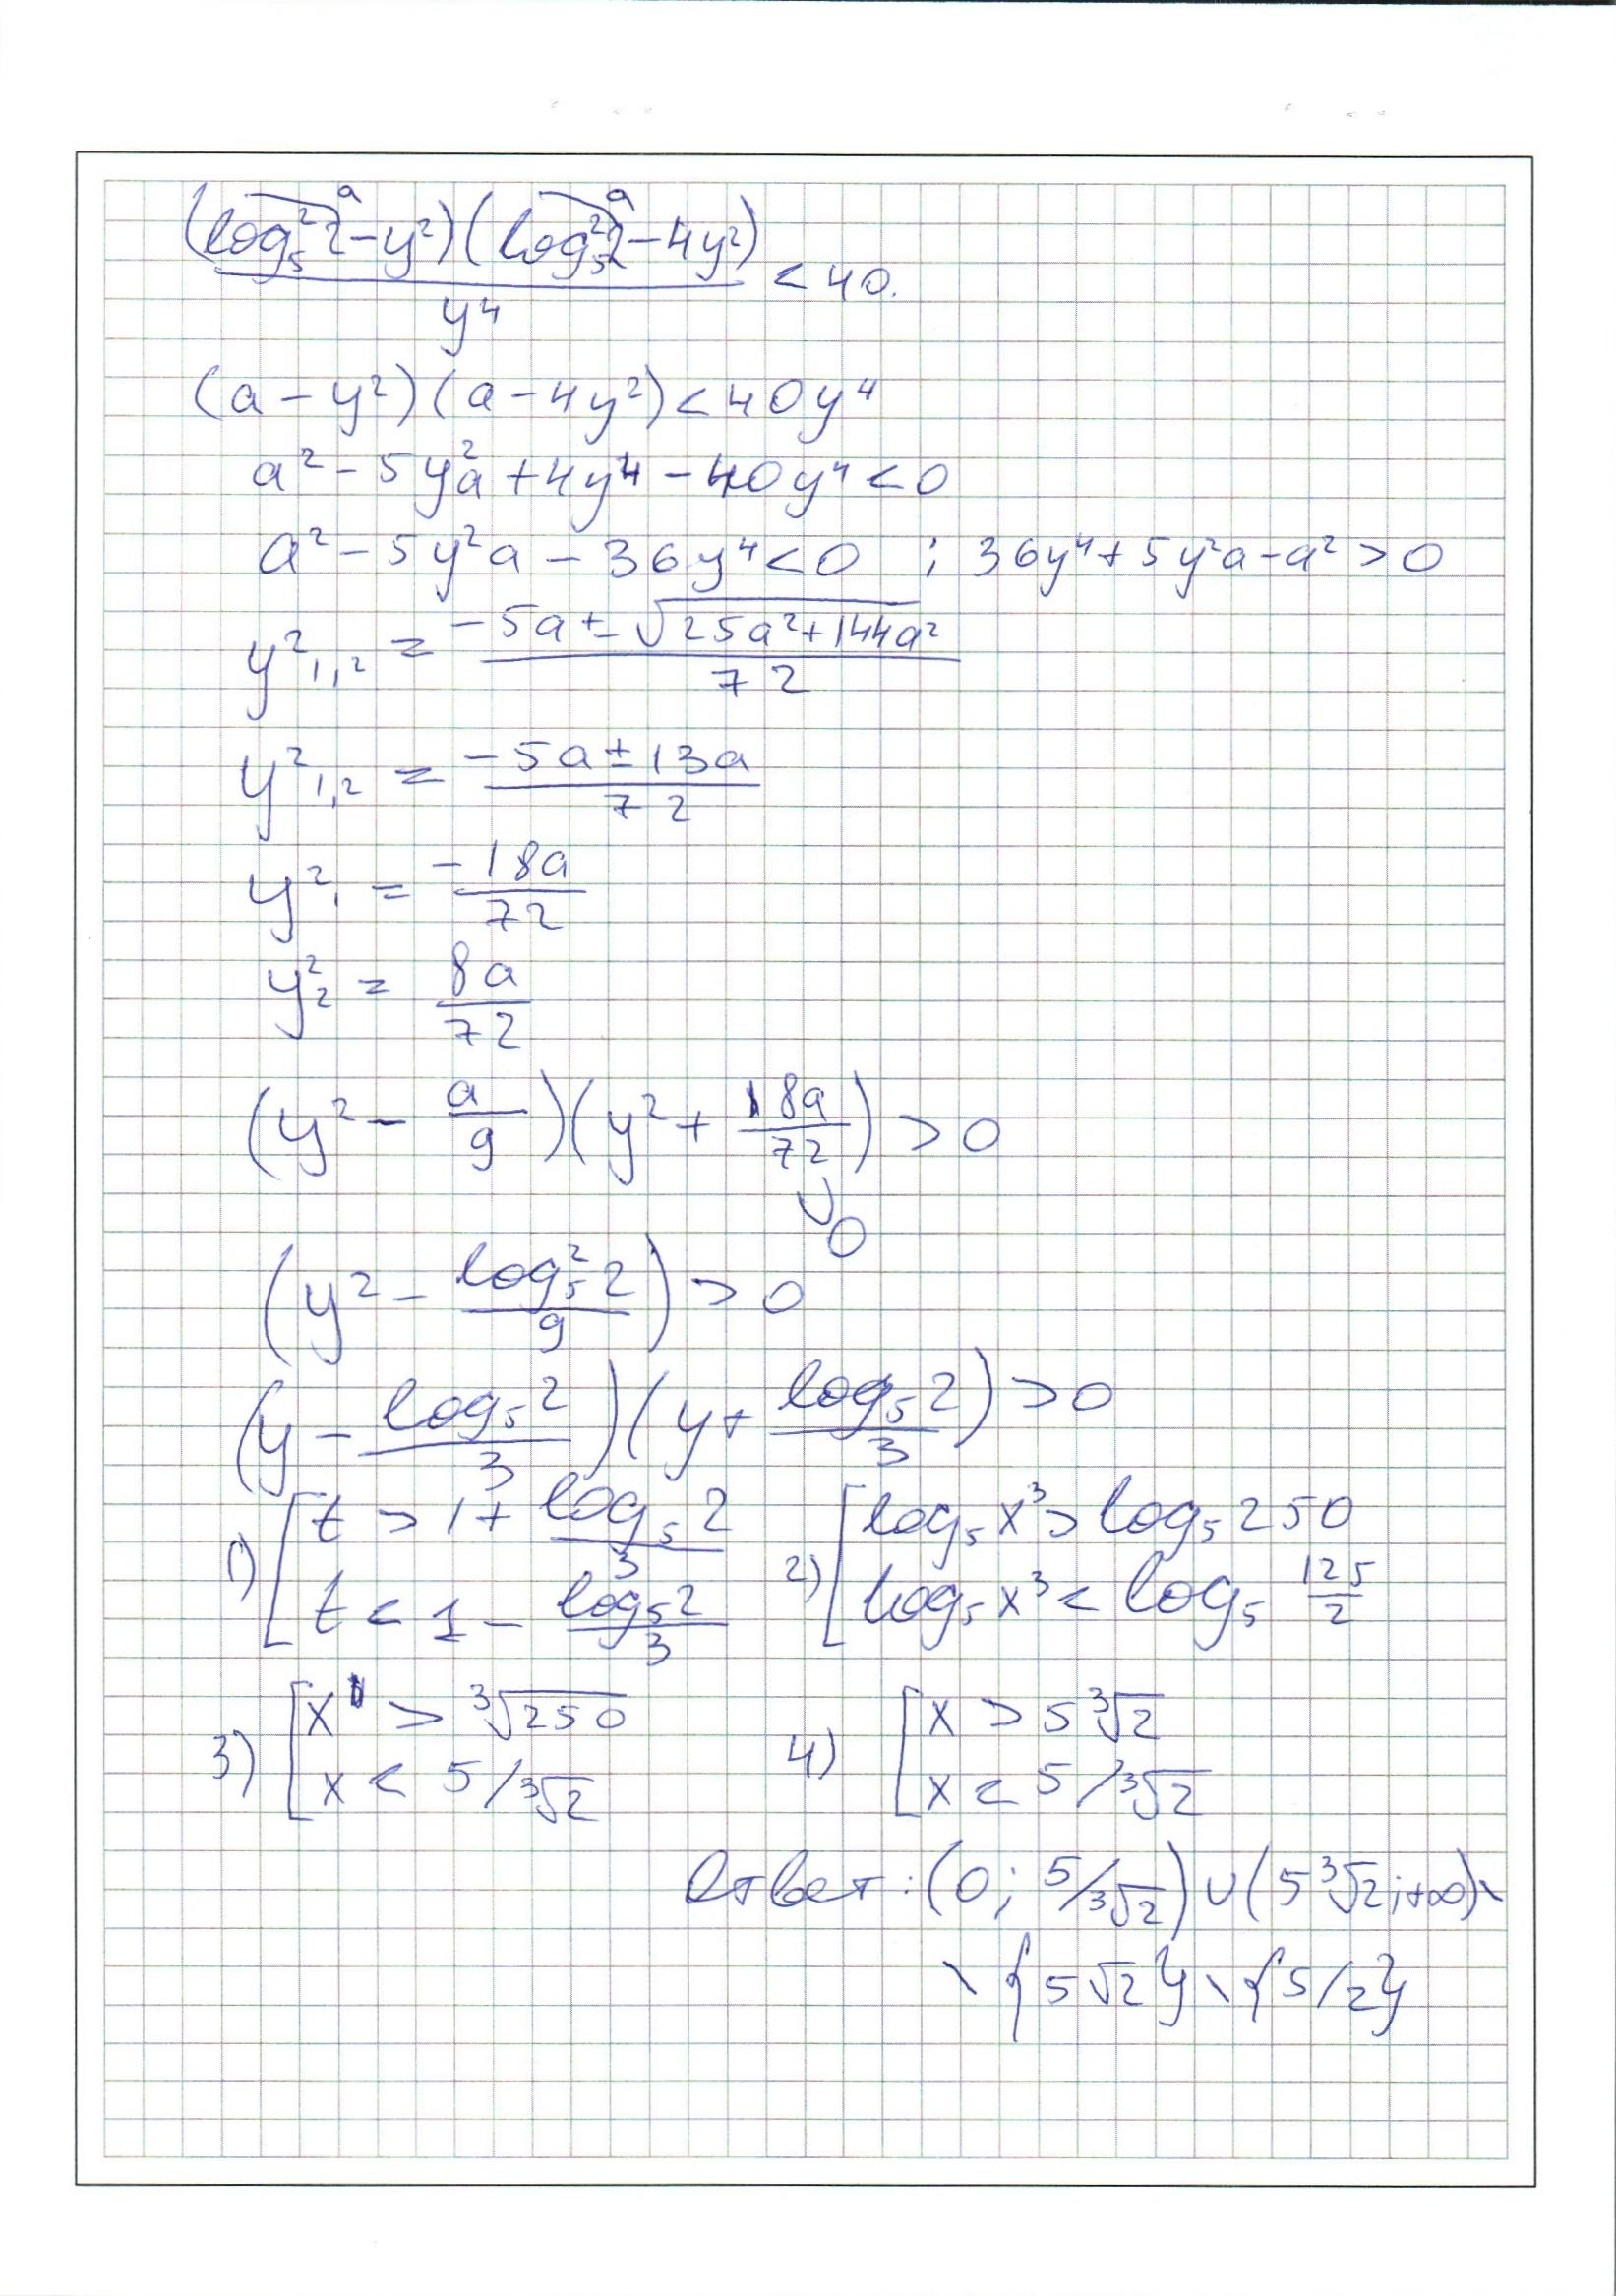 (log₅²2 - y²)(log₅²2 - 4y²) / y⁴ < 40.
a a
(a - y²)(a - 4y²) < 40y⁴
a² - 5y²a + 4y⁴ - 40y⁴ < 0
a² - 5y²a - 36y⁴ < 0 ; 36y⁴ + 5y²a - a² > 0
y²₁,₂ = (-5a ± √(25a² + 144a²)) / 72
y²₁,₂ = (-5a ± 13a) / 72
y²₁ = -18a / 72
y²₂ = 8a / 72
(y² - a/9)(y² + 18a/72) > 0
∨
0
(y² - log₅²2 / 9) > 0
(y - log₅2 / 3)(y + log₅2 / 3) > 0
1) [ t > 1 + log₅2 / 3 2) [ log₅x³ > log₅250
t < 1 - log₅2 / 3 log₅x³ < log₅ 125/2
3) [ x > ³√250 4) [ x > 5³√2
x < 5/³√2 x < 5/³√2
Ответ: (0; 5/³√2) ∪ (5³√2; +∞) \
\ {5√2} \ {5/2}